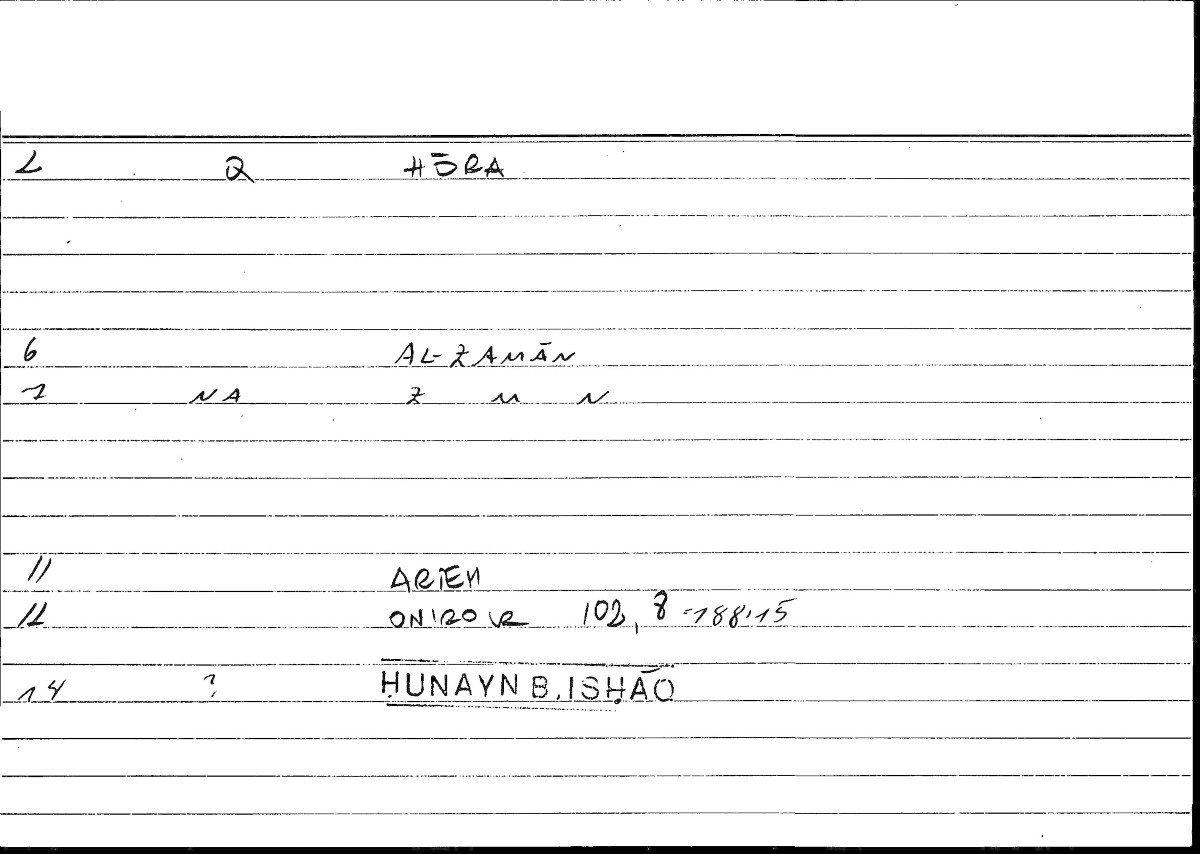 2 Q HŌRA
6 AL-ZAMĀN
7 NA Z M N
11 ARTEM
12 ONIROCR 102, 8 -188,15
14 ? ḤUNAYN B. ISḤĀQ